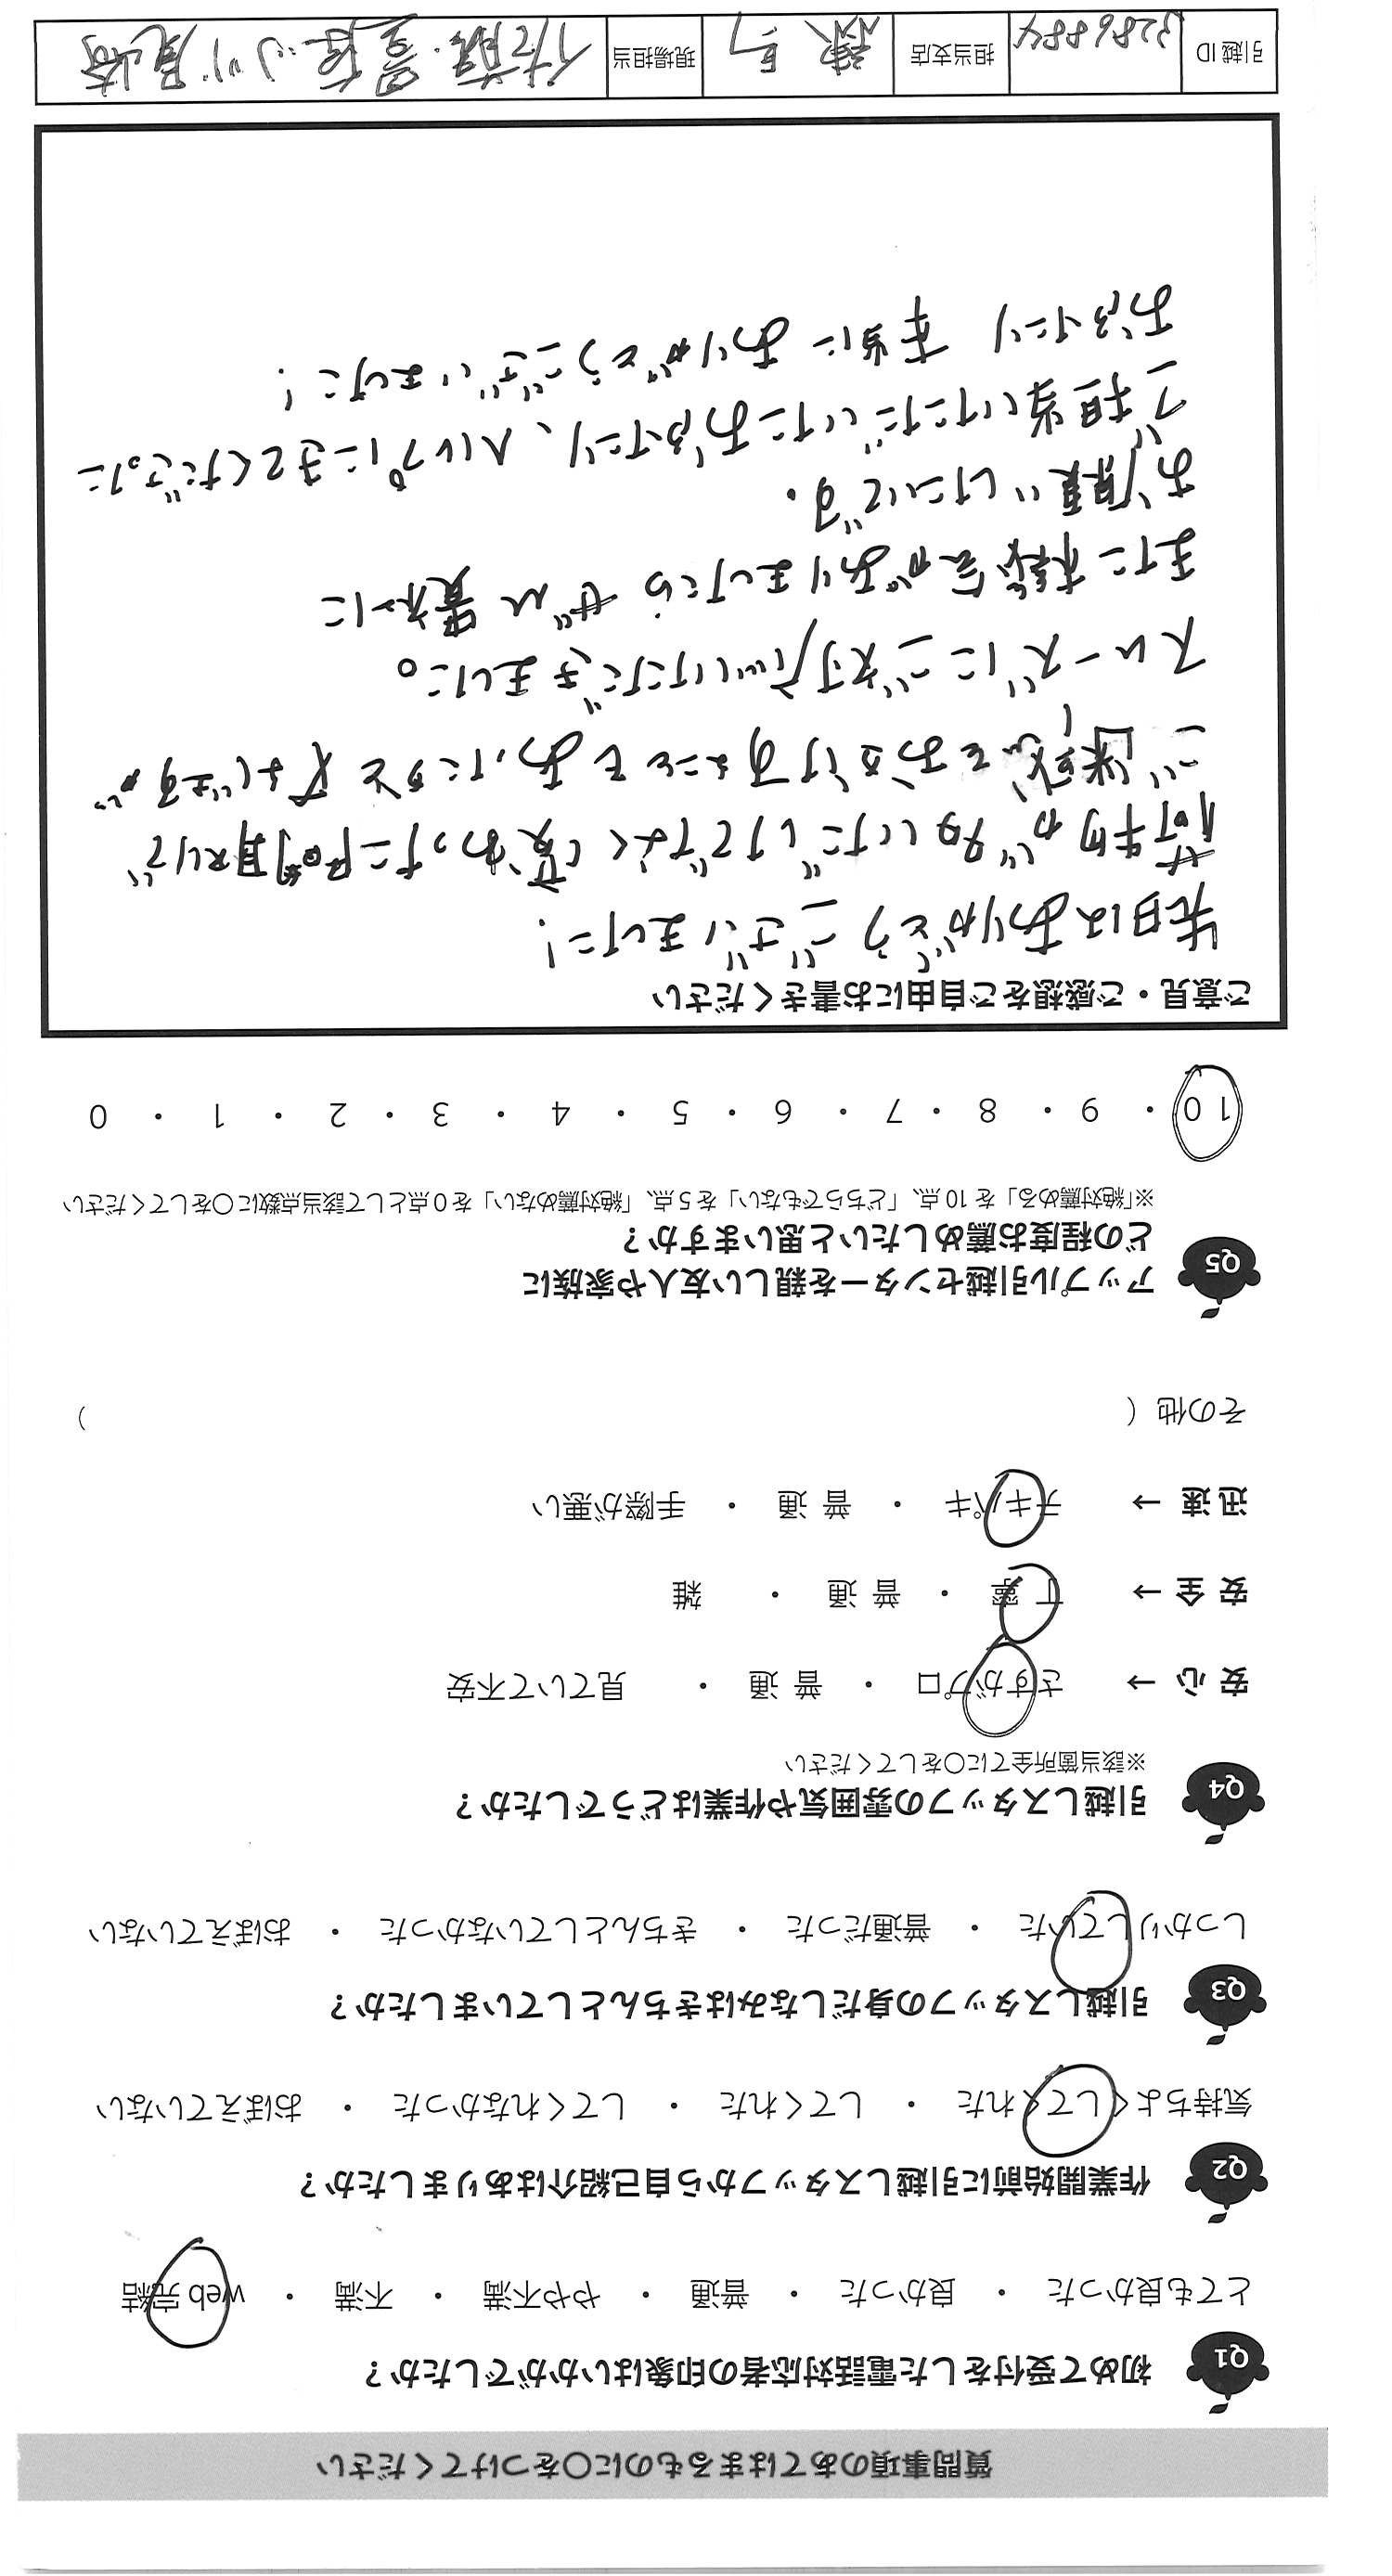 質問事項のあてはまるものに○をつけてください
Q1 初めて受付をした電話対応者の印象はいかがでしたか？
とても良かった ・ 良かった ・ 普通 ・ やや不満 ・ 不満 ・ web 完結
Q2 作業開始前に引越しスタッフから自己紹介はありましたか？
気持ちよくしてくれた ・ してくれた ・ してくれなかった ・ おぼえていない
Q3 引越しスタッフの身だしなみはきちんとしていましたか？
しっかりしていた ・ 普通だった ・ きちんとしていなかった ・ おぼえていない
Q4 引越しスタッフの雰囲気や作業はどうでしたか？
※該当箇所全てに○をしてください
安 心 → さすがプロ ・ 普 通 ・ 見ていて不安
安 全 → 丁 寧 ・ 普 通 ・ 雑
迅 速 → テキパキ ・ 普 通 ・ 手際が悪い
その他（ ）
Q5 アップル引越センターを親しい友人や家族に
どの程度お薦めしたいと思いますか？
※「絶対薦める」を 10 点、「どちらでもない」を 5 点、「絶対薦めない」を 0 点として該当点数に○をしてください
10 ・ 9 ・ 8 ・ 7 ・ 6 ・ 5 ・ 4 ・ 3 ・ 2 ・ 1 ・ 0
ご意見・ご感想をご自由にお書きください
先日はありがとうございました！
荷物が多いだけでなく変わった間取りで
ご迷惑をおかけすることもあったかと思いますが
スムーズにご対応いただきました。
また機会がありましたらぜひ皆さんに
お願いしたいです。
ご担当いただいたおふたり、ヘルプにきてくださった
おふたり 本当にありがとうございました！
引越 ID 3286884 担当支店 練馬 現場担当 佐藤・